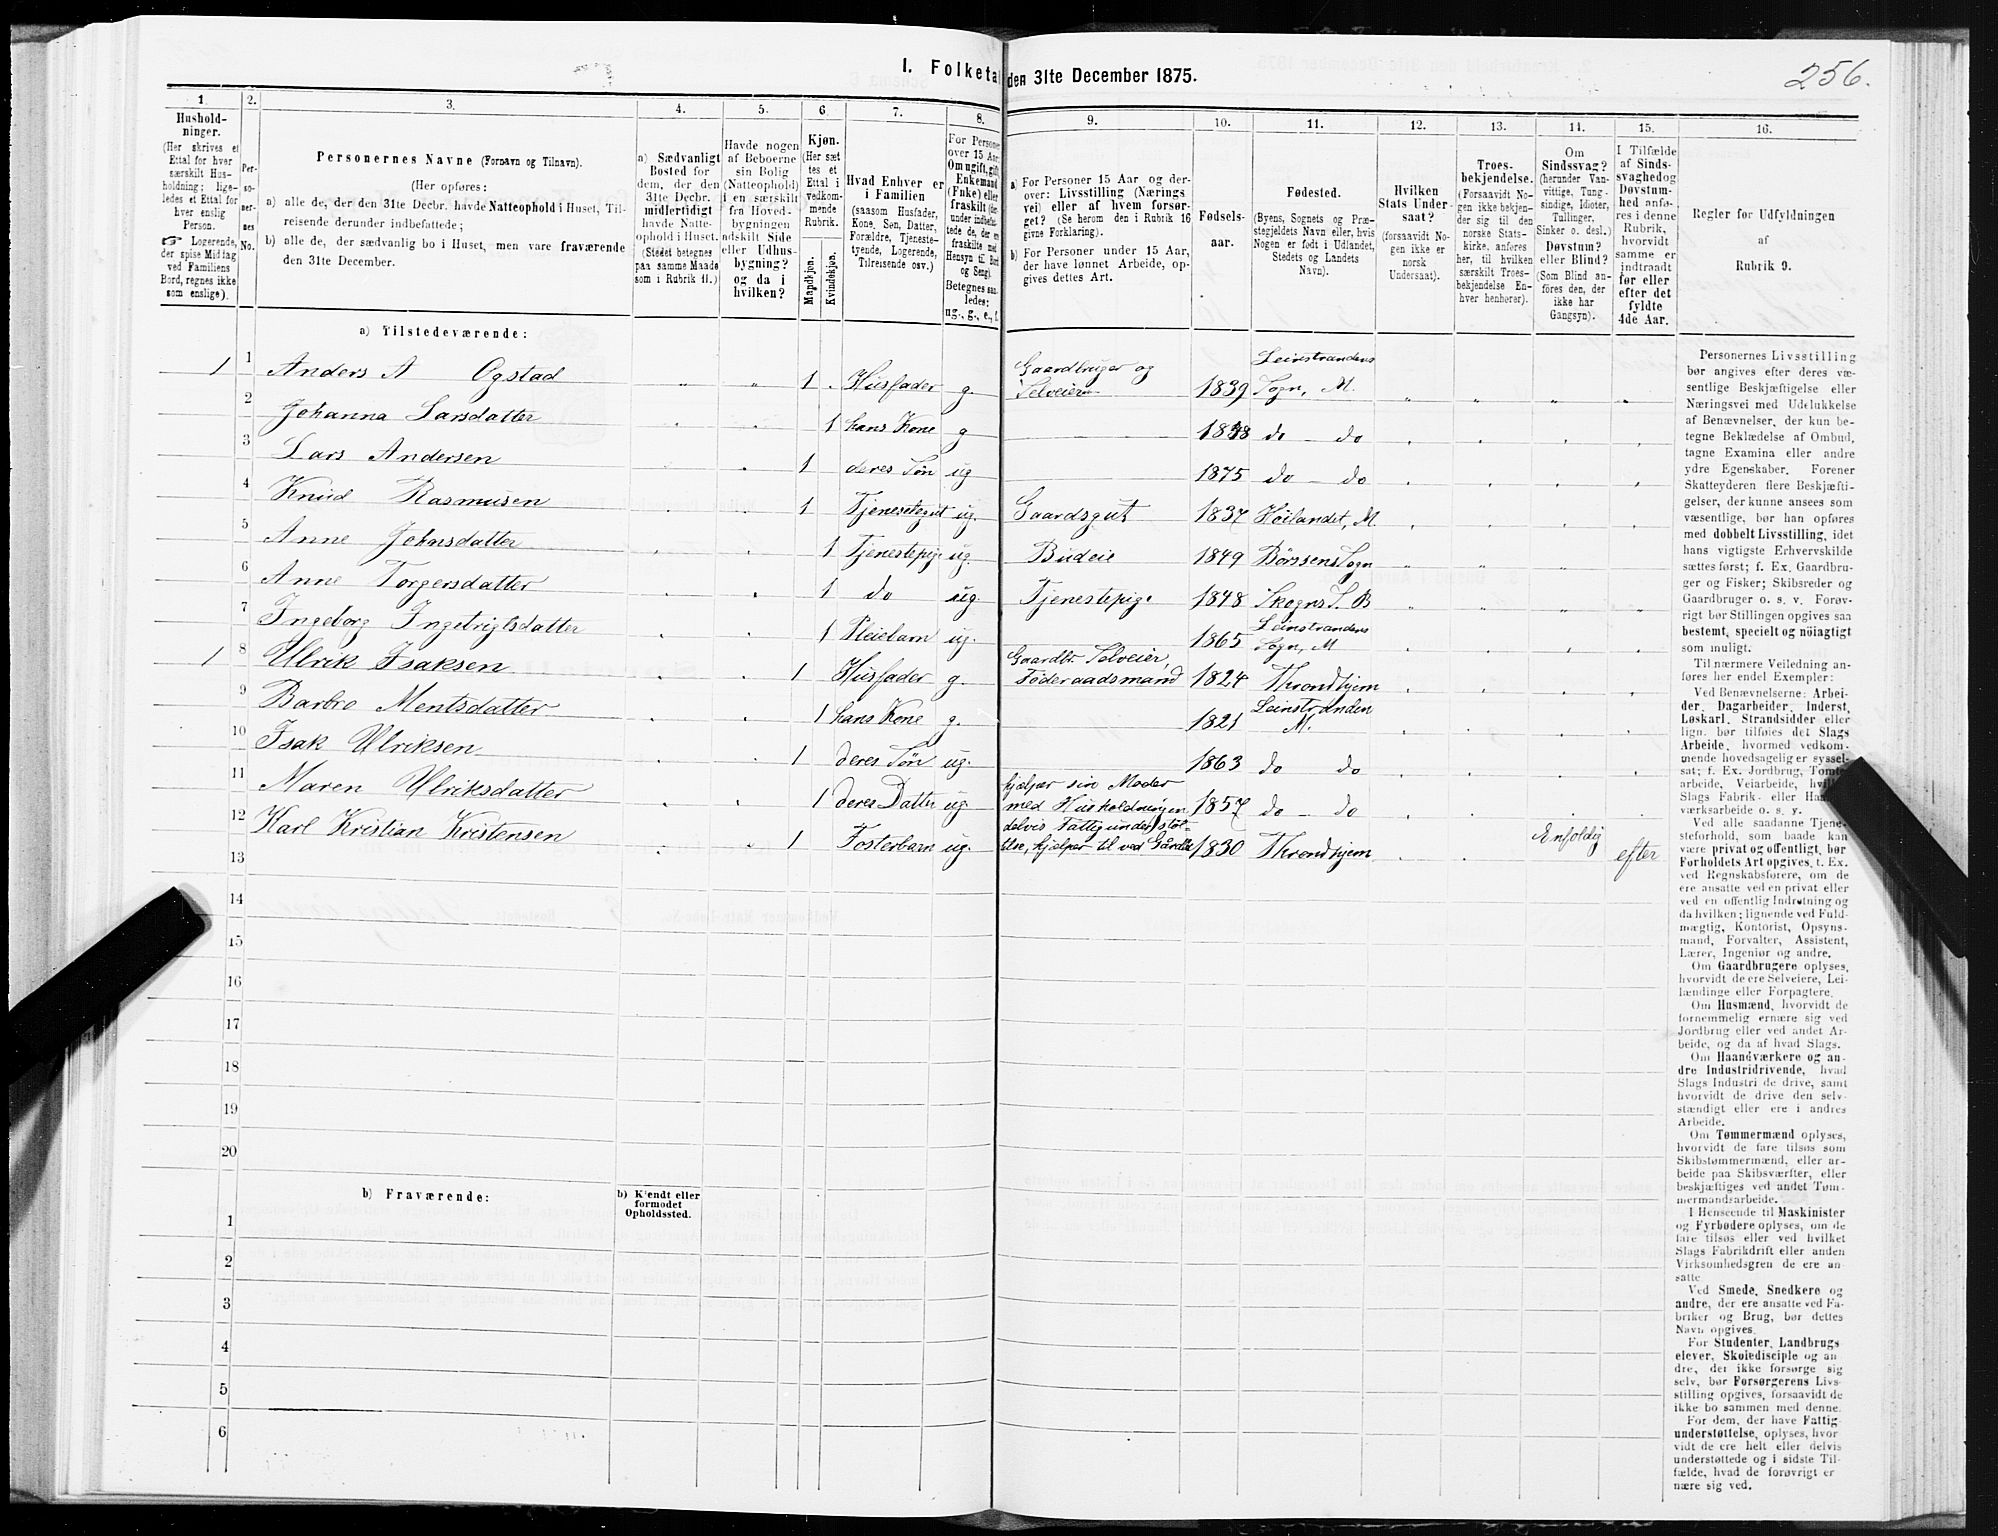 I. Folketal den 31te December 1875.
256.
1. 2. 3. 4. 5. 6. 7. 8. 9. 10. 11. 12. 13. 14. 15. 16.
Husholdninger.
(Her skrives et
Ettal for hver
særskilt Husholdning; ligeledes et Ettal for
hver enslig
Person.
☞ Logerende,
der spise Middag
ved Familiens
Bord, regnes ikke
som enslige).
Personernes No.
Personernes Navne (Fornavn og Tilnavn).
(Her opføres:
a) alle de, der den 31te Decbr. havde Natteophold i Huset, Tilreisende derunder indbefattede;
b) alle de, der sædvanlig bo i Huset, men vare fraværende
den 31te December.
a) Sædvanligt
Bosted for
dem, der den
31te Decbr.
midlertidigt
havde Natteophold i Huset.
(Stedet betegnes
paa samme Maade
som i Rubrik 11.)
Havde nogen
af Beboerne
sin Bolig
(Natteophold)
i en særskilt
fra Hovedbygningen
adskilt Side
eller Udhusbygning?
og da i
hvilken?
Kjøn.
(Her sættes et
Ettal i
vedkommende
Rubrik.
Mandkjøn.
Kvindekjøn.
Hvad Enhver er
i Familien
(saasom Husfader,
Kone, Søn, Datter,
Forældre, Tjenestetyende, Logerende,
Tilreisende osv.)
For Personer
over 15 Aar:
Om ugift, gift,
Enkemand
(Enke) eller
fraskilt
Betegnes saaledes:
ug., g., e., f.
a) For Personer 15 Aar og derover: Livsstilling (Næringsvei) eller af hvem forsørget? (Se herom den i Rubrik 16
givne Forklaring).
b) For Personer under 15 Aar,
der have lønnet Arbeide, opgives dettes Art.
Fødselsaar.
Fødested.
(Byens, Sognets og Præstegjeldets Navn eller, hvis
Nogen er født i Udlandet,
Stedets og Landets
Navn).
Hvilken
Stats Undersaat?
(forsaavidt Nogen ikke er
norsk
Undersaat).
Troesbekjendelse.
(Forsaavidt Nogen ikke bekjender sig til den
norske Statskirke, anføres
her, til hvilken
særskilt Troesbekjendelse Enhver henhører).
Om
Sindssvag?
(herunder Vanvittige, Tungsindige, Idioter,
Tullinger,
Sinker o. desl.)
Døvstum?
eller Blind?
(Som Blind anføres den, der
ikke har
Gangsyn).
I Tilfælde
af Sindssvaghed og
Døvstumhed anføres i denne
Rubrik,
hvorvidt
samme er
indtraadt
før eller
efter det
fyldte
4de Aar.
Regler for Udfyldningen
af
Rubrik 9.
a) Tilstedeværende:
1 1 Anders A Ogstad „ „ 1 . Husfader g. Gaardbruger og Selveier 1839 Leirstrandens Sogn, M.
2 Johanna Larsdatter 1 hans Kone g 1838 do - do
3 Lars Andersen 1 deres Søn ug 1875 do - do
4 Knud Rasmusen 1 Tjenestegut ug. Gaardsgut 1837 Høilandet, M.
5 Anne Johnsdatter 1 Tjenestepige ug. Budeie 1849 Børssens Sogn
6 Anne Torgersdatter 1 do ug. Tjenestepige 1848 Skogns S. B
7 Ingeborg Ingebrigtsdatter 1 Pleiebarn ug. 1865 Leinstrandens Sogn, M
1 8 Ulrik Isaksen 1 Husfader g. Gaardbr. Selveier, Føderaadsmand 1824 Throndhjem
9 Barbro Mentsdatter 1 hans Kone g. 1821 Leinstranden M.
10 Isak Ulriksen 1 deres Søn ug. 1863 do do
11 Maren Ulriksdatter 1 deres Datter ug. hjelper sin Moder med Husholdningen 1857 do - do
12 Karl Kristian Kristensen 1 Fosterbarn ug. delvis Fattigunderstøttelse, hjelper til ved Gården 1830 Throndhjem Enfoldig efter
13
14
15
16
17
18
19
20
b) Fraværende:
b) Kjendt eller
formodet
Opholdssted.
1
2
3
4
5
6
Personernes Livsstilling
bør angives efter deres væsentlige Beskjæftigelse eller
Næringsvei med Udelukkelse
af Benævnelser, der kun betegne Beklædelse af Ombud,
tagne Examina eller andre
ydre Egenskaber. Forener
Skatteyderen flere Beskjæftigelser, der kunne ansees som
væsentlige, bør han opføres
med dobbelt Livsstilling, idet
hans vigtigste Erhvervskilde
sættes først; f. Ex. Gaardbruger og Fisker; Skibsreder og
Gaardbruger o. s. v. Forøvrigt bør Stillingen opgives saa
bestemt, specielt og nøiagtigt
som muligt.
Til nærmere Veiledning anføres her endel Exempler:
Ved Benævnelserne: Arbeider, Dagarbeider, Inderst,
Løskarl, Strandsidder eller
lign. bør tilføies det Slags
Arbeide, hvormed vedkommende hovedsagelig er sysselsat; f. Ex. Jordbrug, Tomtearbeide, Veiarbeide, hvilket
Slags Fabrik- eller Haandværksarbeide o. s. v.
Ved alle saadanne Tjenesteforhold, som baade kan
være privat og offentligt, bør
Forholdets Art opgives, t. Ex.
ved Regnskabsførere, om de
ere ansatte ved en privat eller
ved en offentlig Indretning og
da hvilken; lignende ved Fuldmægtig, Kontorist, Opsynsmand, Forvalter, Assistent,
Lærer, Ingeniør og andre.
Om Gaardbrugere oplyses,
hvorvidt de ere Selveiere, Leilændinge eller Forpagtere.
Om Husmænd, hvorvidt de
fornemmelig ernære sig ved
Jordbrug eller ved andet Arbeide, og da af hvad Slags.
Om Haandværkere og andre Industridrivende, hvad
Slags Industri de drive, samt
hvorvidt de drive den selvstændigt eller ere i andres
Arbeide.
Om Tømmermænd oplyses,
hvorvidt de fare tilsøs som
Skibstømmermænd, eller arbeide paa Skibsværfter, eller
beskjæftiges ved andet Tømmermandsarbeide.
I Henseende til Maskinister
og Fyrbødere oplyses, om de
fare tilsøs eller ved hvilket
Slags Fabrikdrift eller anden
Virksomhedsgren de ere ansatte.
Ved Smede, Snedkere og
andre, der ere ansatte ved Fabriker og Brug, bør dettes
Navn opgives.
For Studenter, Landbrugselever, Skoledisciple og andre, der ikke forsørge sig
selv, bør Forsørgerens Livsstilling opgives, forsaavidt de
ikke bo sammen med denne.
For dem, der have Fattigunderstøttelse, oplyses, hvorvidt de ere helt eller delvis
understøttede og i sidste Tilfælde, hvad de forøvrigt ernære sig ved.